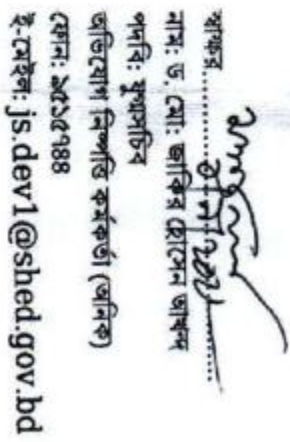 স্বাক্ষর
নাম: ড. মো: জাকির হোসেন আখন্দ
পদবি: যুগ্মসচিব
অভিযোগ নিষ্পত্তি কর্মকর্তা (অনিক)
ফোন: ৯৫১৫৭৪৪
ই-মেইল: js.dev1@shed.gov.bd